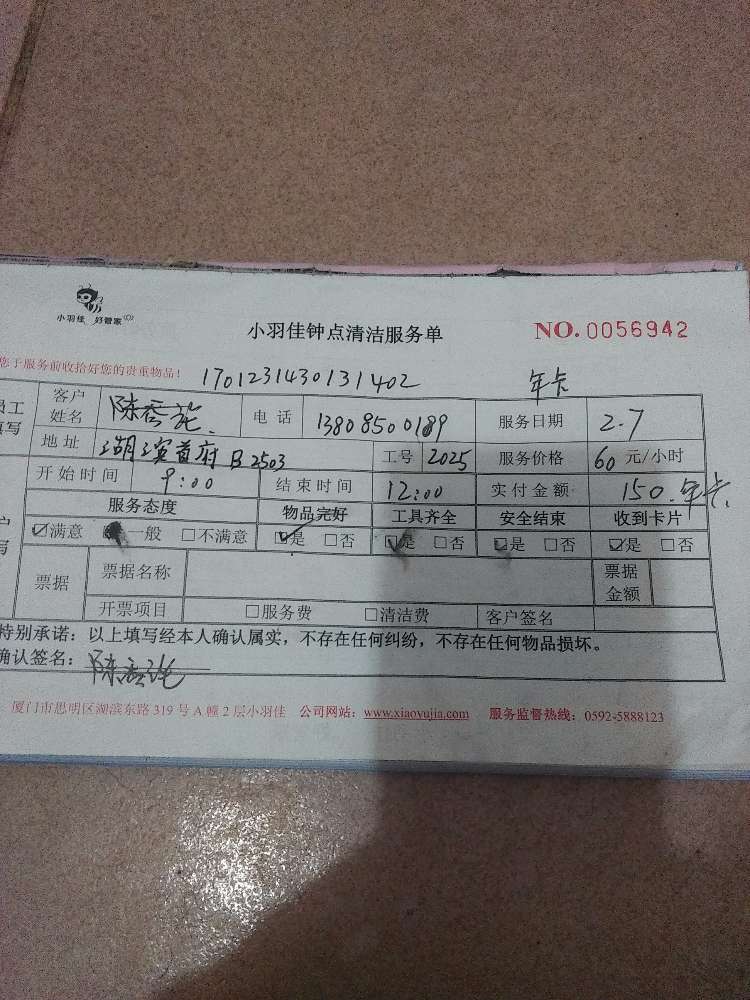 小羽佳 好管家
小羽佳钟点清洁服务单 NO.0056942
您于服务前收拾好您的贵重物品！ 1701231430131402 年卡
员工填写 客户姓名 陈 电话 13808500189 服务日期 2.7
地址 湖滨首府B2503 工号 2025 服务价格 60 元/小时
开始时间 9:00 结束时间 12:00 实付金额 150.年卡
服务态度 物品完好 工具齐全 安全结束 收到卡片
☑满意 一般 □不满意 ☑是 □否 ☑是 □否 ☑是 □否 ☑是 □否
票据 票据名称 票据金额
开票项目 □服务费 □清洁费 客户签名
特别承诺：以上填写经本人确认属实，不存在任何纠纷，不存在任何物品损坏。
确认签名： 陈
厦门市思明区湖滨东路319号A幢2层小羽佳 公司网站：www.xiaoyujia.com 服务监督热线：0592-5888123